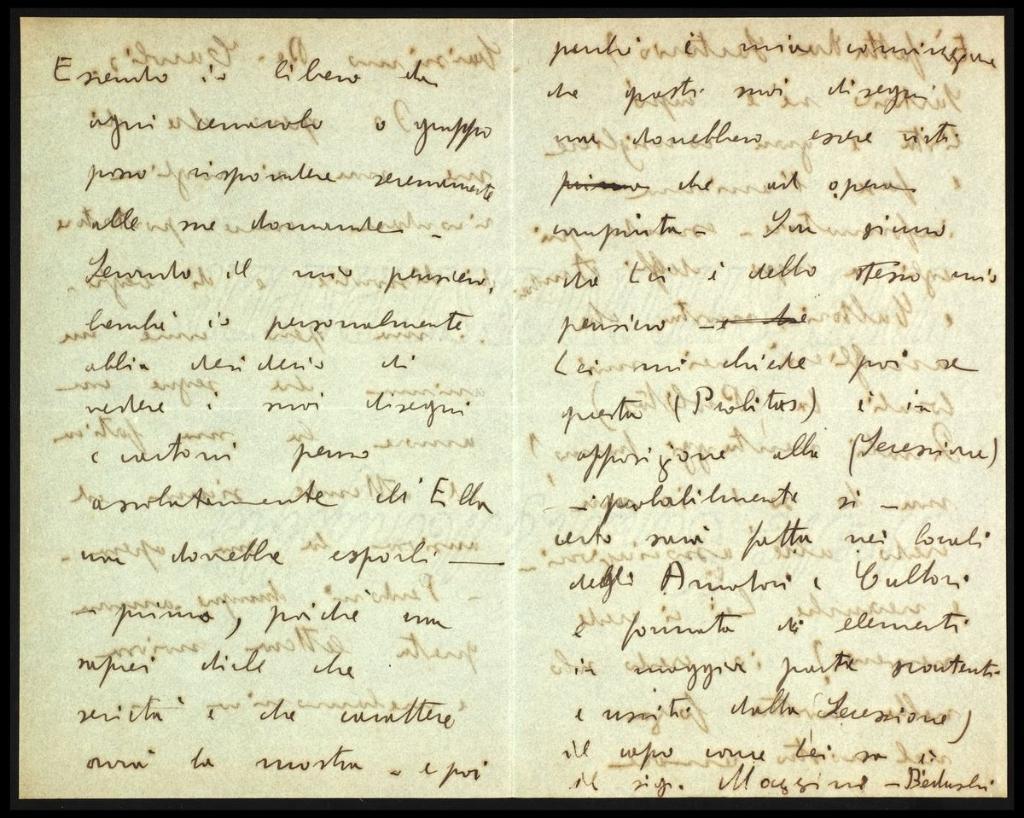 Essendo io libero da
ogni cenacolo o gruppo
posso rispondere serenamente
alle sue domande -
Secondo il mio pensiero,
benchè io personalmente
abbia desiderio di
vedere i suoi disegni
e cartoni penso
assolutamente ch'Ella
non dovrebbe esporli —
- primo, poichè non
saprei dirle che
serietà e che carattere
avrà la mostra - e poi
perchè è mia convinzione
che questi suoi disegni
non dovrebbero essere visti
prima che ad opera
compiuta - Son sicuro
che Lei è dello stesso mio
pensiero - e che
Lei mi chiede poi se
questa (Probitas) è in
opposizione alla (Secessione)
- probabilmente si -
certo sarà fatta nei locali
degli Amatori e Cultori
e formata di elementi
in maggior parte scontenti
e usciti dalla (Secessione)
il capo come Lei sa è
il sig. - Beduschi